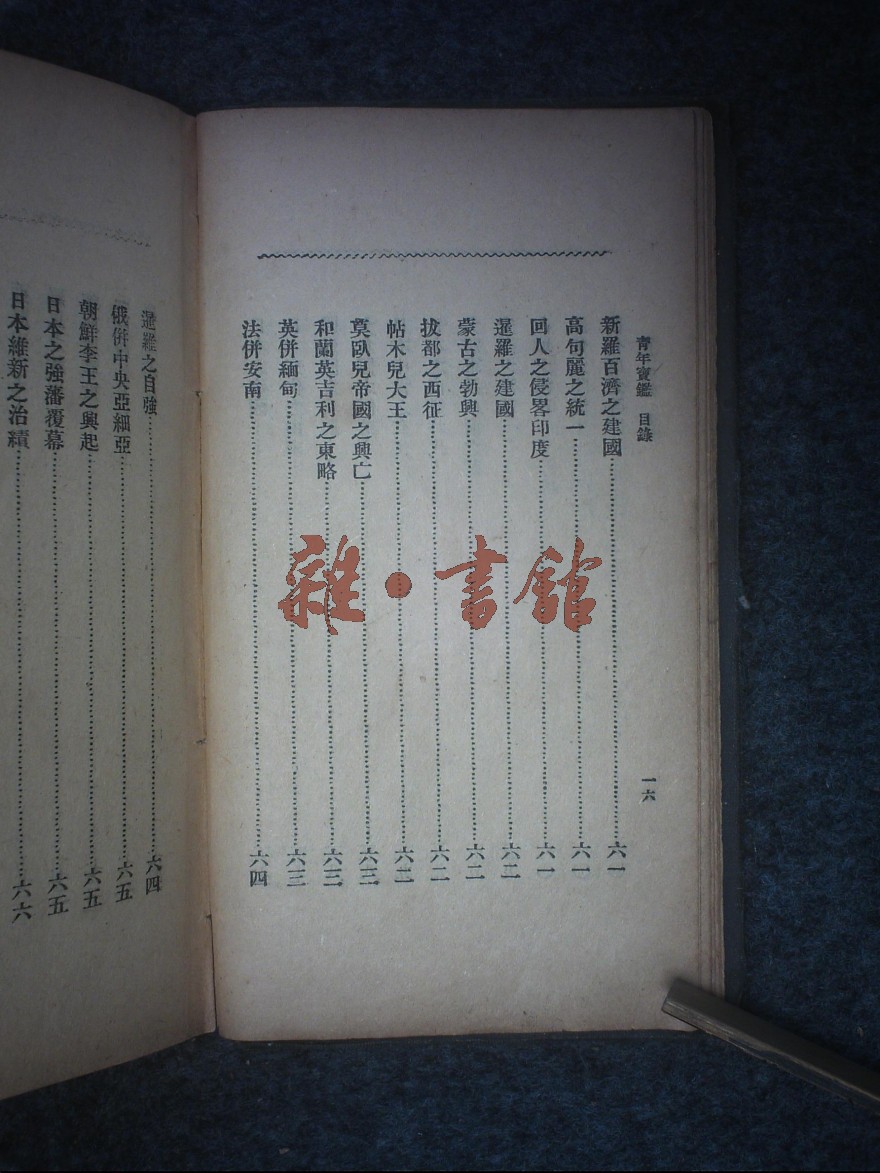 青年寶鑑 目錄
一六
新羅百濟之建國……六一
高句麗之統一……六一
回人之侵畧印度……六一
暹羅之建國……六二
蒙古之勃興……六二
拔都之西征……六二
帖木兒大王……六二
莫臥兒帝國之興亡……六三
和蘭英吉利之東略……六三
英併緬甸……六三
法併安南……六四
暹羅之自強……六四
俄併中央亞細亞……六五
朝鮮李王之興起……六五
日本之強藩覆幕……六五
日本維新之治績……六六
雜·書館